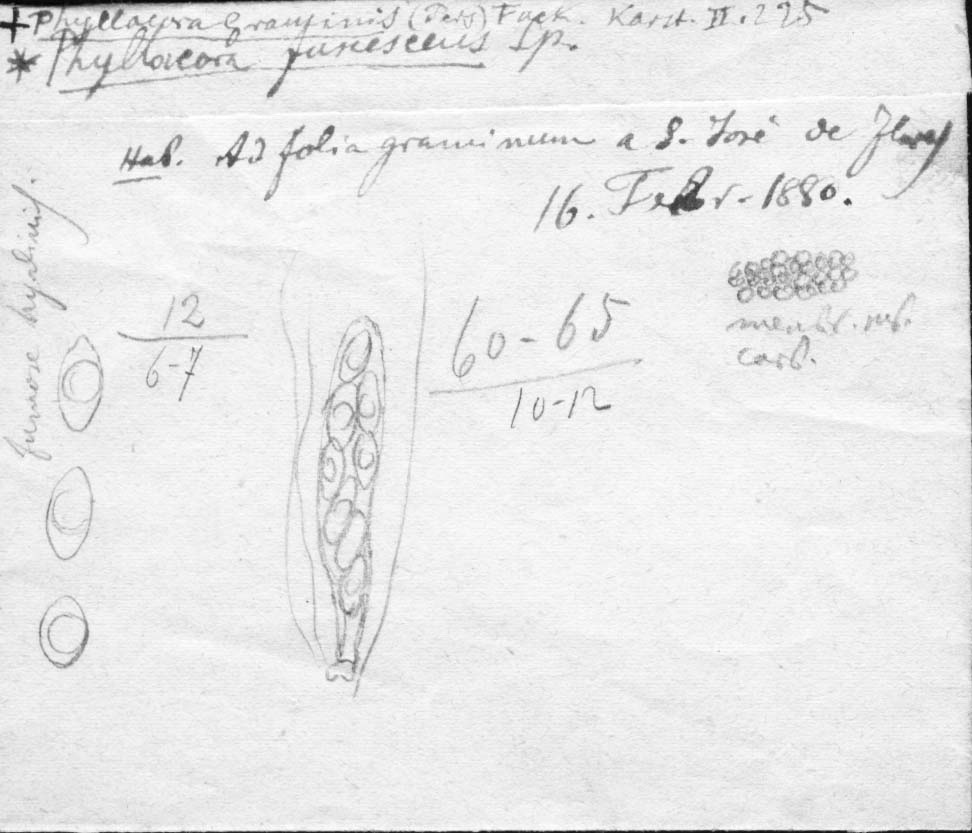 + Phyllacora Graminis (Pers) Fuck. Karst. II. 225
* Phyllacora fuscescens Sp.
Hab. Ad folia graminum a S. José de
16. Febr. 1880.
fumose hyalinis.
12
6-7
60-65
10-12
membr. sub.
carb.